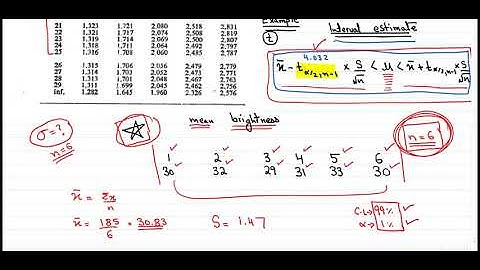 21 1,323 1,721 2,080 2,518 2,831
22 1,321 1,717 2,074 2,508 2,819
23 1,319 1,714 2,069 2,500 2,807
24 1,318 1,711 2,064 2,492 2,797
25 1,316 1,708 2,060 2,485 2,787
26 1,315 1,706 2,056 2,479 2,779
27 1,314 1,703 2,052 2,473 2,771
28 1,313 1,701 2,048 2,467 2,763
29 1,311 1,699 2,045 2,462 2,756
inf. 1.282 1.645 1.960 2.326 2,576
Example
t
Interval estimate
4.032
x̄ - t α/2, n-1 × S/√n < μ < x̄ + t α/2, n-1 × S/√n
σ = ?
n = 6
mean brightness
n = 6
1 2 3 4 5 6
30 32 29 31 33 30
x̄ = Σx/n
x̄ = 185/6 = 30.83
S = 1.47
C.L → 99%
α → 1%